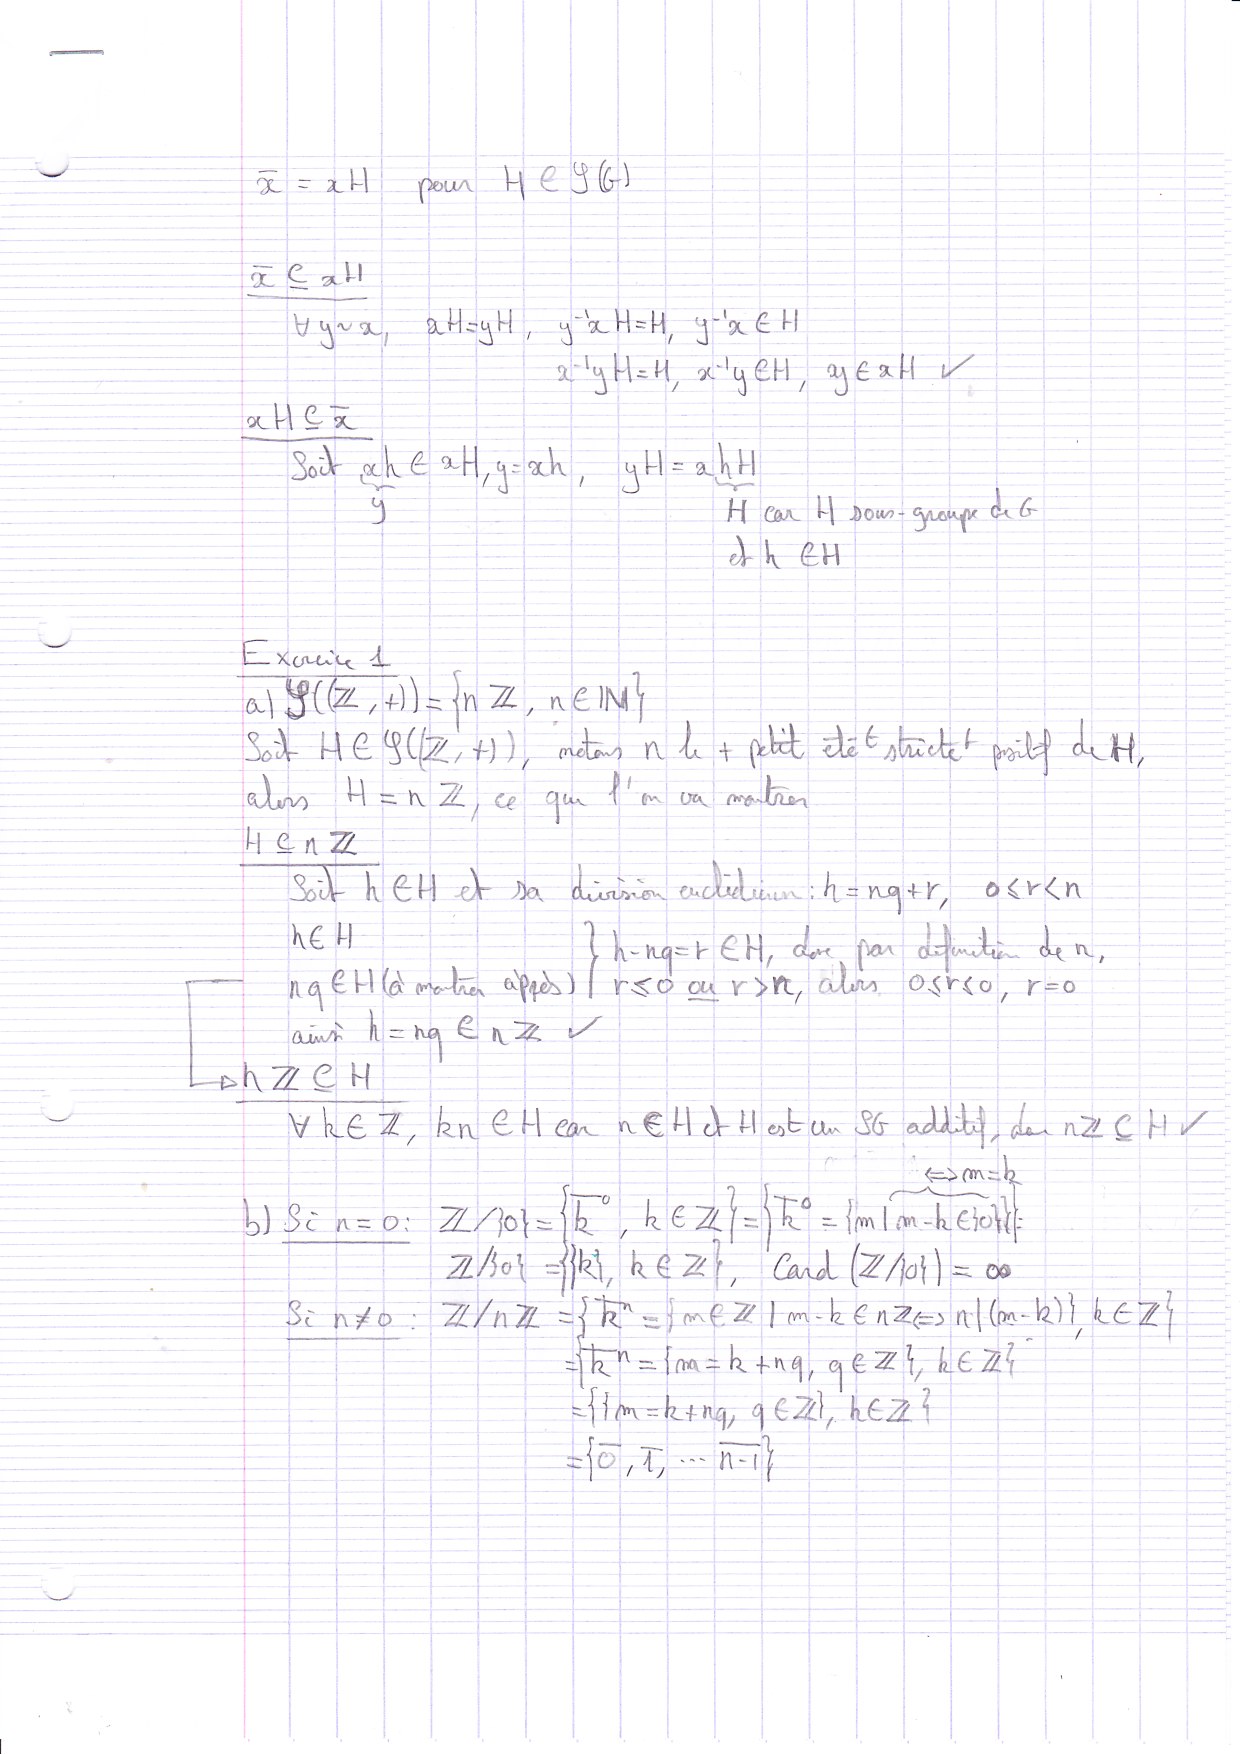 x̄ = xH pour H ∈ 𝒮(G)
x̄ ⊆ xH
∀ y~x, xH=yH, y⁻¹xH=H, y⁻¹x ∈ H
x⁻¹yH=H, x⁻¹y∈H, y ∈ xH ✓
xH ⊆ x̄
Soit xh ∈ xH, y=xh, yH = xhH
y H car H sous-groupe de G
et h ∈H
Exercice 1
a) 𝒮((ℤ,+)) = {nℤ, n∈ℕ}
Soit H∈𝒮((ℤ,+)), notons n le + petit élé^t strict^t positif de H,
alors H = nℤ, ce que l'on va montrer
H ⊆ nℤ
Soit h∈H et sa division euclidienne : h=nq+r, 0≤r<n
h∈H } h-nq=r ∈H, donc par définition de n,
nq∈H (à montrer après) } r≤0 ou r>n, alors 0≤r≤0, r=0
ainsi h=nq ∈ nℤ ✓
nℤ ⊆ H
∀k∈ℤ, kn∈H car n∈H et H est un SG additif, donc nℤ ⊆ H ✓
⟺ m=k
b) Si n=0: ℤ/{0} = {k̄⁰, k∈ℤ} = {k̄⁰ = {m | m-k∈{0}}} =
ℤ/{0} = {{k}, k∈ℤ}, Card(ℤ/{0}) = ∞
Si n≠0: ℤ/nℤ = {k̄ⁿ = {m∈ℤ | m-k∈nℤ ⟺ n|(m-k)}, k∈ℤ}
= {k̄ⁿ = {m=k+nq, q∈ℤ}, k∈ℤ}
= {{m=k+nq, q∈ℤ}, k∈ℤ}
= {0̄, 1̄, ... n-1̄}